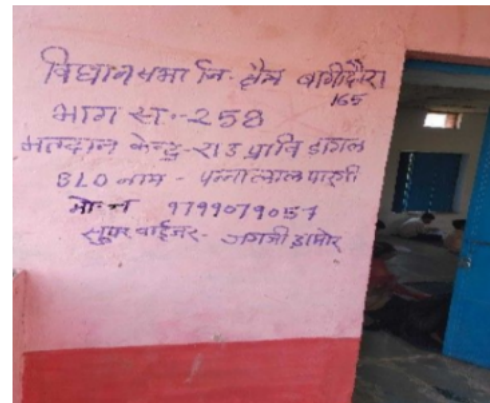 विधानसभा नि. क्षेत्र बागीदौरा
165
भाग सं.-258
मतदान केन्द्र-रा उ प्रा वि डागल
BLO नाम - पन्नालाल पारगी
मो. न 9799079057
सुपरवाईजर- जगजी डामोर